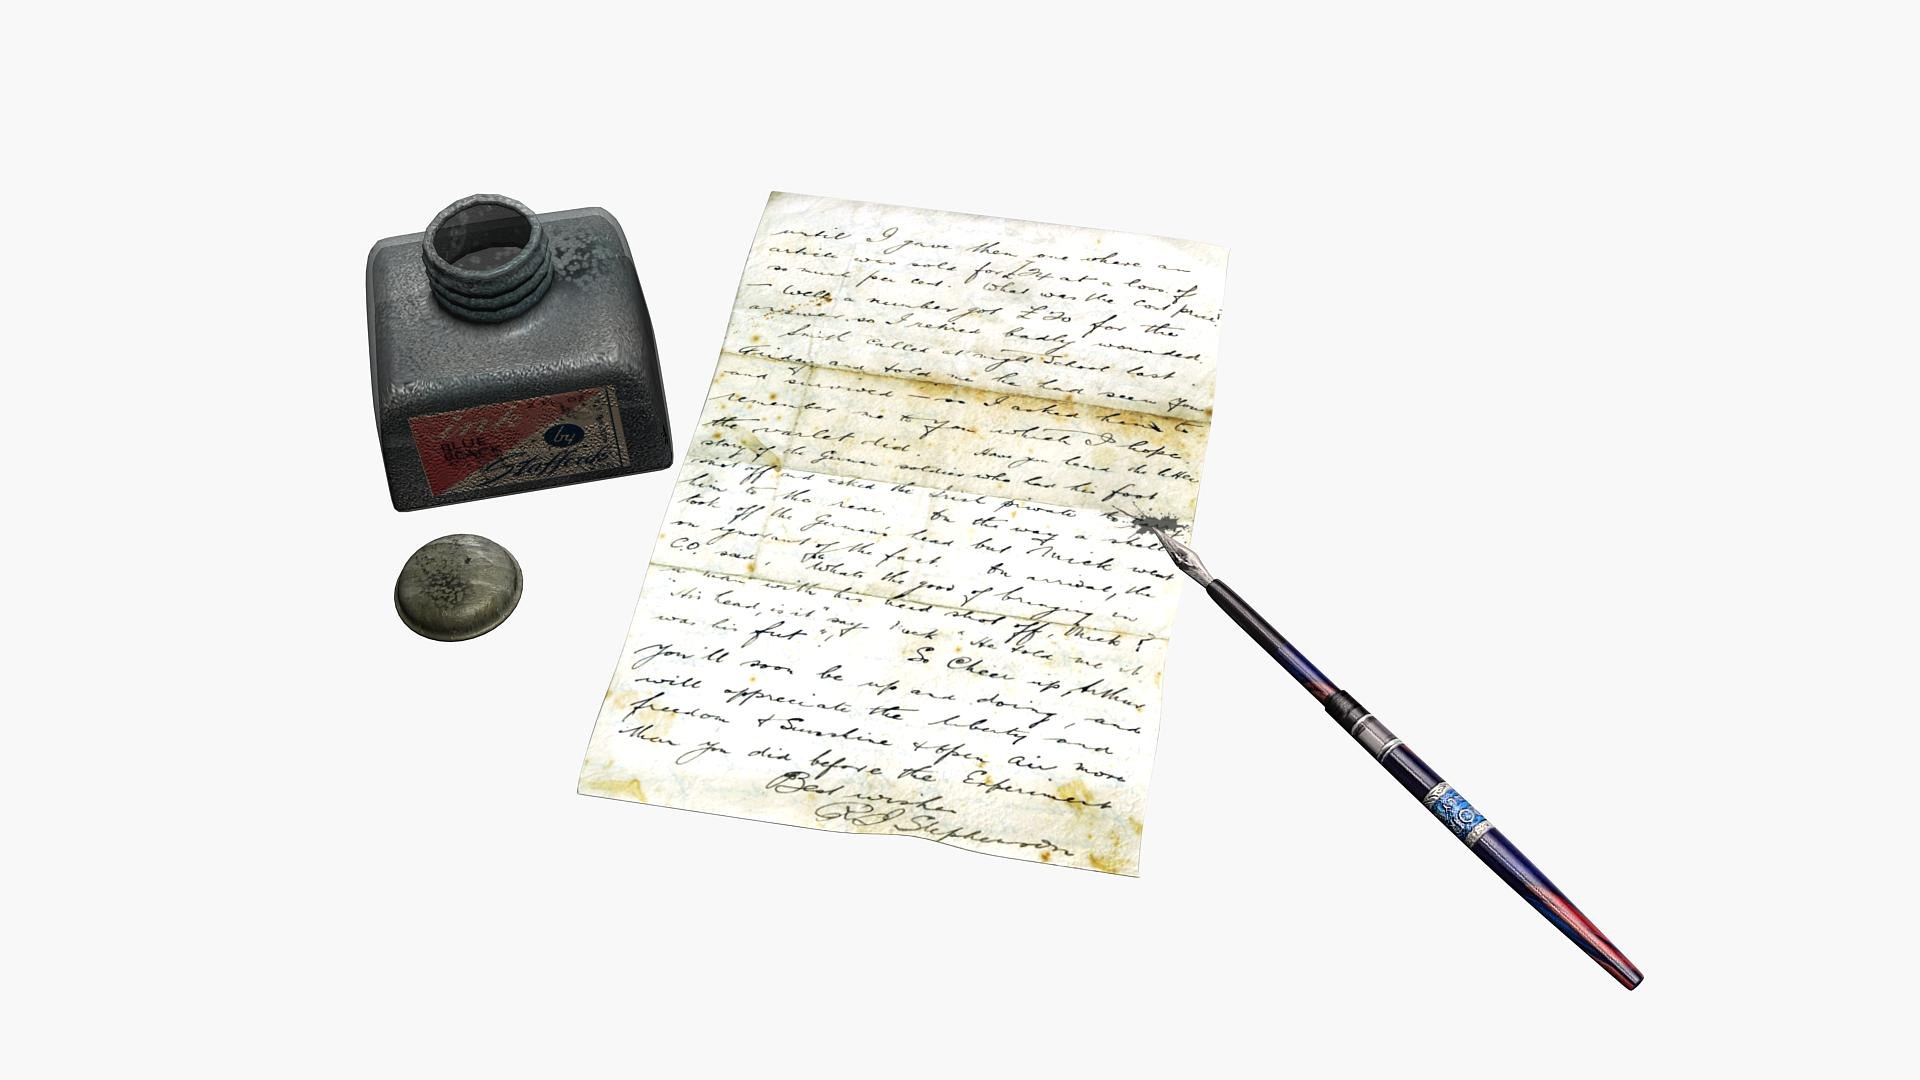 ink
BLUE
BLACK
by
Stafford's
until I gave them one where an
article was sold for £24 at a loss of
so much per cent. What was the cost price?
– Well a number got £30 for the
answer so I retired badly wounded.
Smith called at night School last
Friday and told me he had seen you
and survived – so I asked him to
remember me to you which I hope
the varlet did. Have you heard the latest
story of the German soldier who had his foot
shot off and asked the Irish private to
him to the rear. On the way a shell
took off the German's head but Mick went
on ignorant of the fact. On arrival, the
C.O. said, "What's the good of bringing in
a man with his head shot off, Mick?
"His head, is it" says Mick "He told me it
was his fut",! So Cheer up Arthur
You'll soon be up and doing, and
will appreciate the liberty and
freedom & Sunshine & open air more
than you did before the Experiment
Best wishes
R J Stephenson